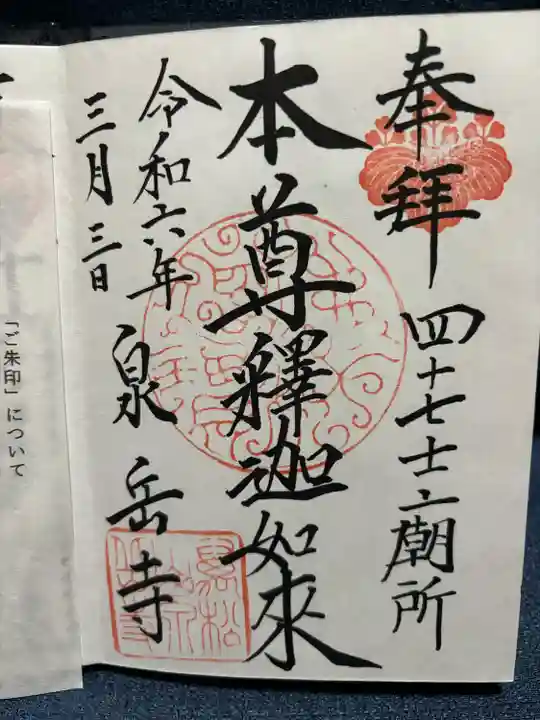 奉拝
四十七士廟所
本尊釋迦如來
令和六年
三月三日
泉岳寺
「ご朱印」について